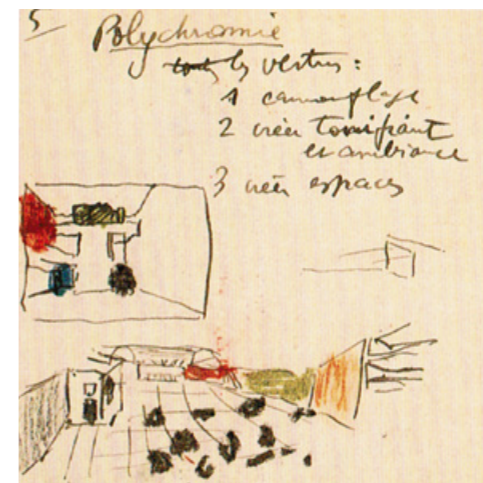 5
Polychromie
tous les vertus :
1 camouflage
2 créer tonifiant
et ambiance
3 créer espaces